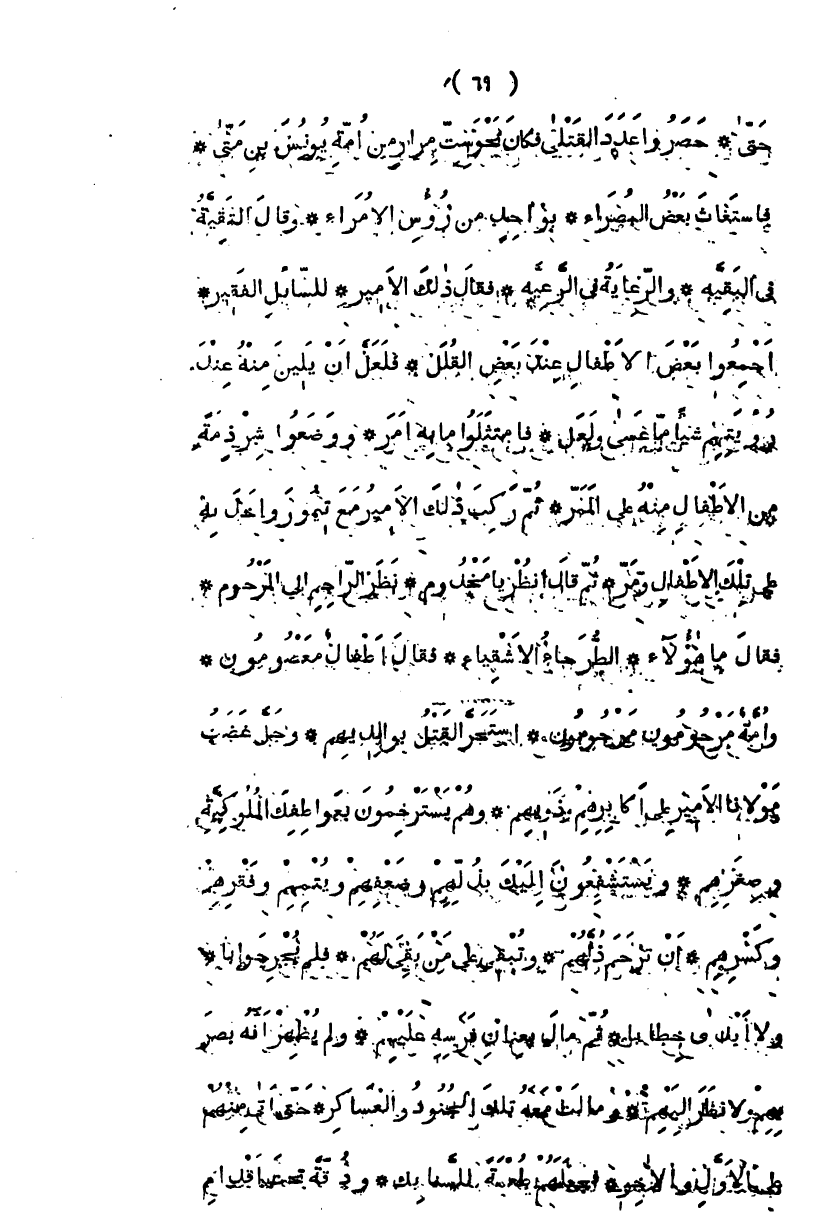 ( ٦٩ )
حَتَّى * حَصَرُوا عَدَدَ القَتْلَى فكانَ نَحْوَ سِتِّ مِرارٍ مِن اُمَّةِ يُونُسَ بنِ مَتَّى *
فاستَغَاثَ بَعْضُ البُصَرَاء * بِوَاحِدٍ من رُؤُسِ الاُمَرَاء * وقالَ التَّقِيَّةُ
فى البَقِيَّه * والرِّعَايَةُ فى الرَّعِيَّه * فقالَ ذٰلكَ الاَمير * للسّائلِ الفَقِير *
اَجْمِعُوا بَعْضَ الاَطْفالِ عِنْدَ بَعْضِ القُلَل * فَلَعَلَّ اَنْ يَلِينَ مِنْهُ عِنْدَ
رُؤْيَتِهِم شيأً مّا عَسَى ولَعَلّ * فامتَثَلُوا ما بِه اَمَر * ووَضَعُوا شِرْذِمَةً
مِن الاَطْفالِ مِنْهُ على المَمَرّ * ثُمّ رَكِبَ ذٰلكَ الاَميرُ مَعَ تيمُورَ واَخَذَ بِه
على تِلْكَ الاَطْفالِ ومَرّ * ثُمّ قالَ انظُرْ يا مَخْدُوم * نَظَرَ الرّاحِمِ الى المَرْحُوم *
فقالَ ما هٰؤُلَآء * الطُّرَحَاءُ الاَشْقِياء * فقالَ اَطْفالٌ مَعْصُومُون *
واُمَّةٌ مَرْحُومُون مَحرومُون * استَحَرَّ القَتْلُ بوالِدِيهِم * وحَلَّ غَضَبُ
مَوْلانا الاَميرِ على اَكابِرِهِمْ وذَوِيهِم * وهُمْ يَسْتَرْحِمُونَ بعَواطِفِكَ المُلُوكِيَّةِ
وصِغَرِهِم * ويَسْتَشْفِعُونَ اِلَيْكَ بذُلِّهِمْ وضَعْفِهِمْ ويُتْمِهِمْ وفَقْرِهِمْ
وكَسْرِهِم * اَنْ تَرْحَمَ ذُلَّهُمْ * وتُبْقِىَ على مَنْ بَقِىَ لَهُمْ * فلم يُحْرِ جَوابا *
ولا اَبْدَى خِطابا * ثُمّ مالَ بعِنانِ فَرَسِه عَلَيْهِمْ * ولم يُظْهِرْ اَنَّه بَصَرَ
بِهِمْ ولا نَظَرَ اِلَيْهِمْ * ومالَتْ مَعَهُ تلكَ الجُنُودُ والعَساكِر * حَتّى اَتَى مِنْهُمْ
على الاَوَّلِ والآخِر * فجَعَلَهُم طُعْمَةً للسَّنابِك * ودُقَّةً تحتَ اَقْدامِ